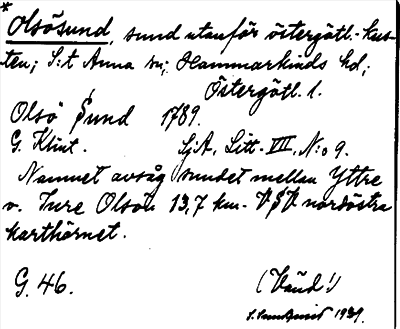 * Olsösund, sund utanför östergötl.-kus-
ten; S:t Anna sn; Hammarkinds hd;
Östergötl. l.
Olsö Sund 1789.
G. Klint. SjA, Litt. VIII, N:o 9.
Namnet avsåg sundet mellan Yttre
o. Inre Olsön 13,7 km. VSV nordöstra
karthörnet.
G. 46. (Vänd!)
1939.